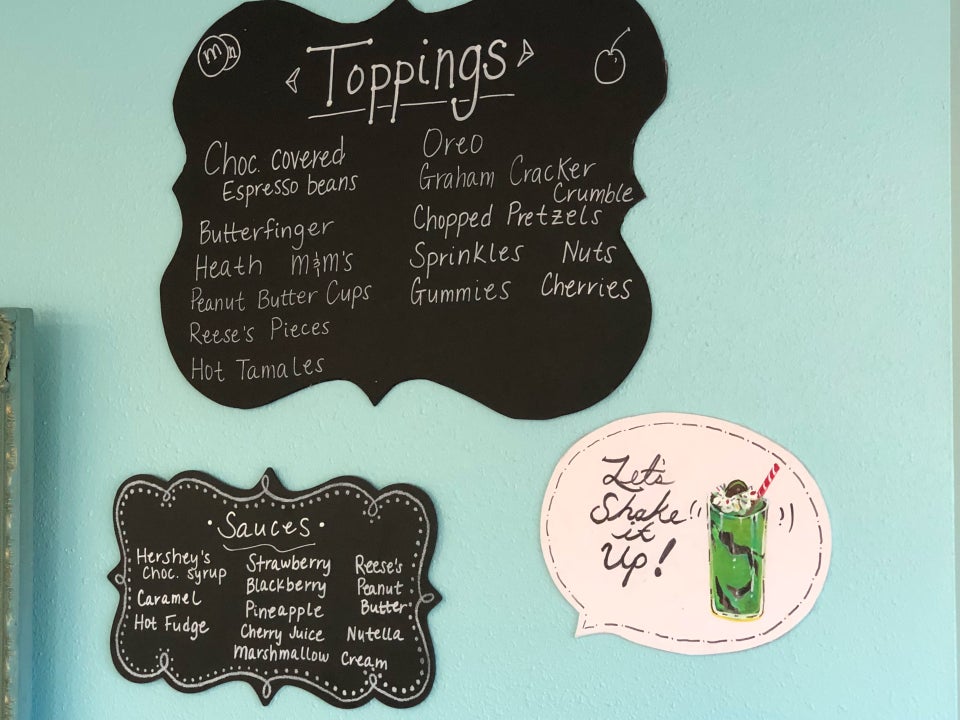 m n
Toppings
Choc. covered
Espresso beans
Butterfinger
Heath M&M's
Peanut Butter Cups
Reese's Pieces
Hot Tamales
Oreo
Graham Cracker
Crumble
Chopped Pretzels
Sprinkles Nuts
Gummies Cherries
Sauces
Hershey's
Choc. syrup
Caramel
Hot Fudge
Strawberry
Blackberry
Pineapple
Cherry Juice
Marshmallow Cream
Reese's
Peanut
Butter
Nutella
Let's
Shake
it
Up!